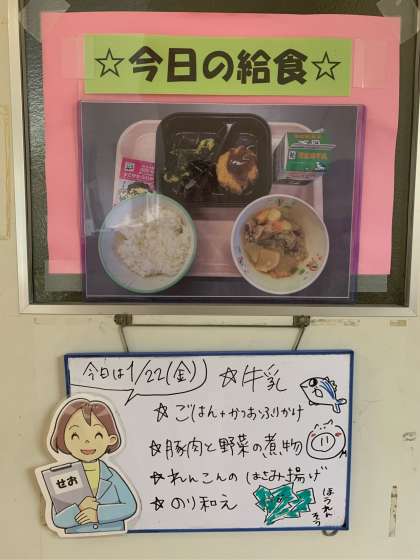 ☆今日の給食☆
今日は1/22(金)
☆牛乳
☆ごはん+かつおふりかけ
☆豚肉と野菜の煮物
☆れんこんのはさみ揚げ
☆のり和え
ほうれんそう
せお